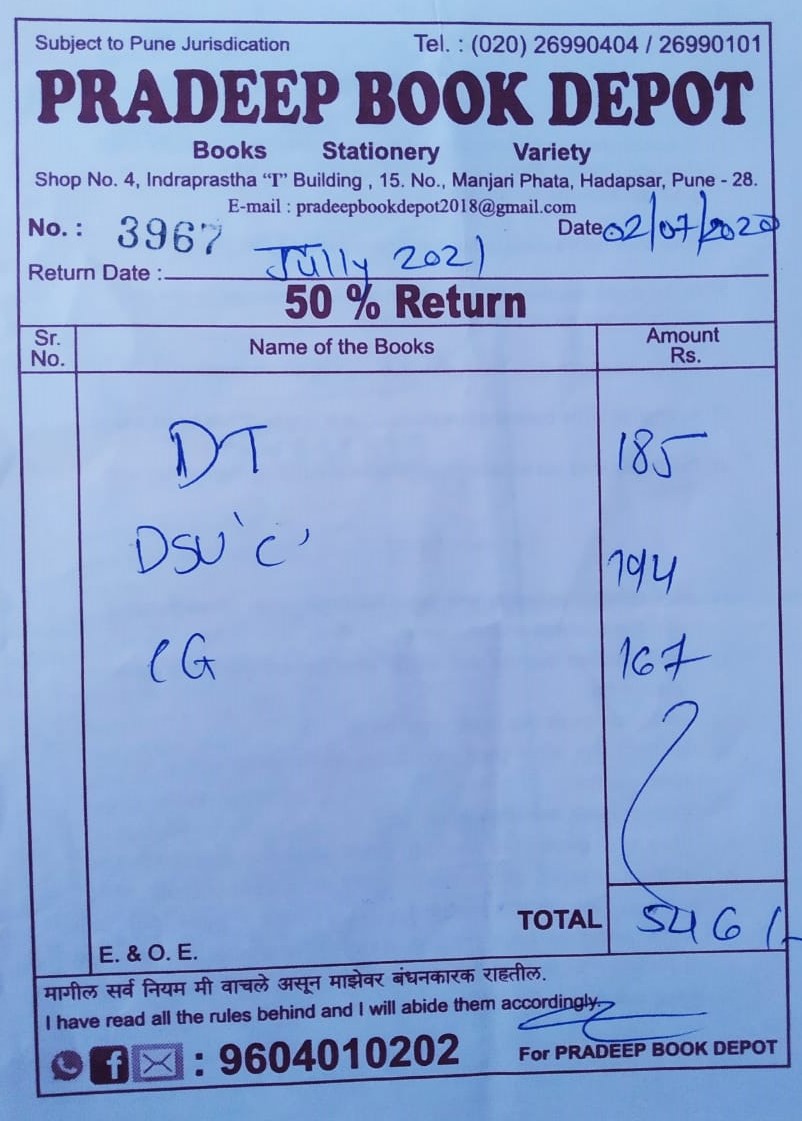 Subject to Pune Jurisdication Tel. : (020) 26990404 / 26990101
PRADEEP BOOK DEPOT
Books Stationery Variety
Shop No. 4, Indraprastha "I" Building , 15. No., Manjari Phata, Hadapsar, Pune - 28.
E-mail : pradeepbookdepot2018@gmail.com
No. : 3967 Date 02/07/2020
Return Date : Jully 2021
50 % Return
Sr. No. Name of the Books Amount Rs.
DT 185
DSU 'C' 194
CG 167
TOTAL 546/-
E. & O. E.
मागील सर्व नियम मी वाचले असून माझेवर बंधनकारक राहतील.
I have read all the rules behind and I will abide them accordingly.
: 9604010202 For PRADEEP BOOK DEPOT